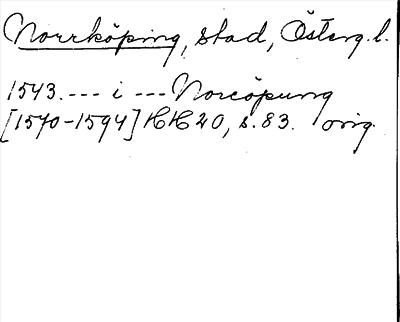 Norrköping, stad, Österg. l.
1543. --- i --- Norcöpung
[1570-1594] HH 20, s. 83. orig.